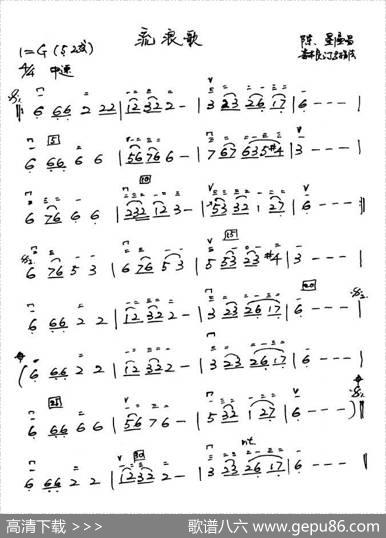 流浪歌
1=G (5 2弦)
4/4 中速
6 66 2 22 | 12 32 2 - | 3 23 26 17 | 6 - - - |
5
6 66 6 6 | 56 76 6 - | 7 67 635 #4 | 3 - - - |
10
6 76 6 6 | 232 12 3 - | 53 32 1 27 | 6 - - -
15
6 76 5 3 | 6 76 5 3 | 5 53 23 #4 | 3 - - - |
20
6 66 2 2 | 12 32 2 - | 3 23 26 17 | 6 - - -
( 6 66 2 2 | 12 32 2 - | 3 23 26 17 | 6 - - - |
25
6 66 6 6 | 56 76 - | 5 32 1 27 | 6 - - - )
30
rit.
6 66 2 2 | 12 32 2 - | 3 23 26 17 | 6 - - - |
高清下载 >>>
歌谱八六 www.gepu86.com